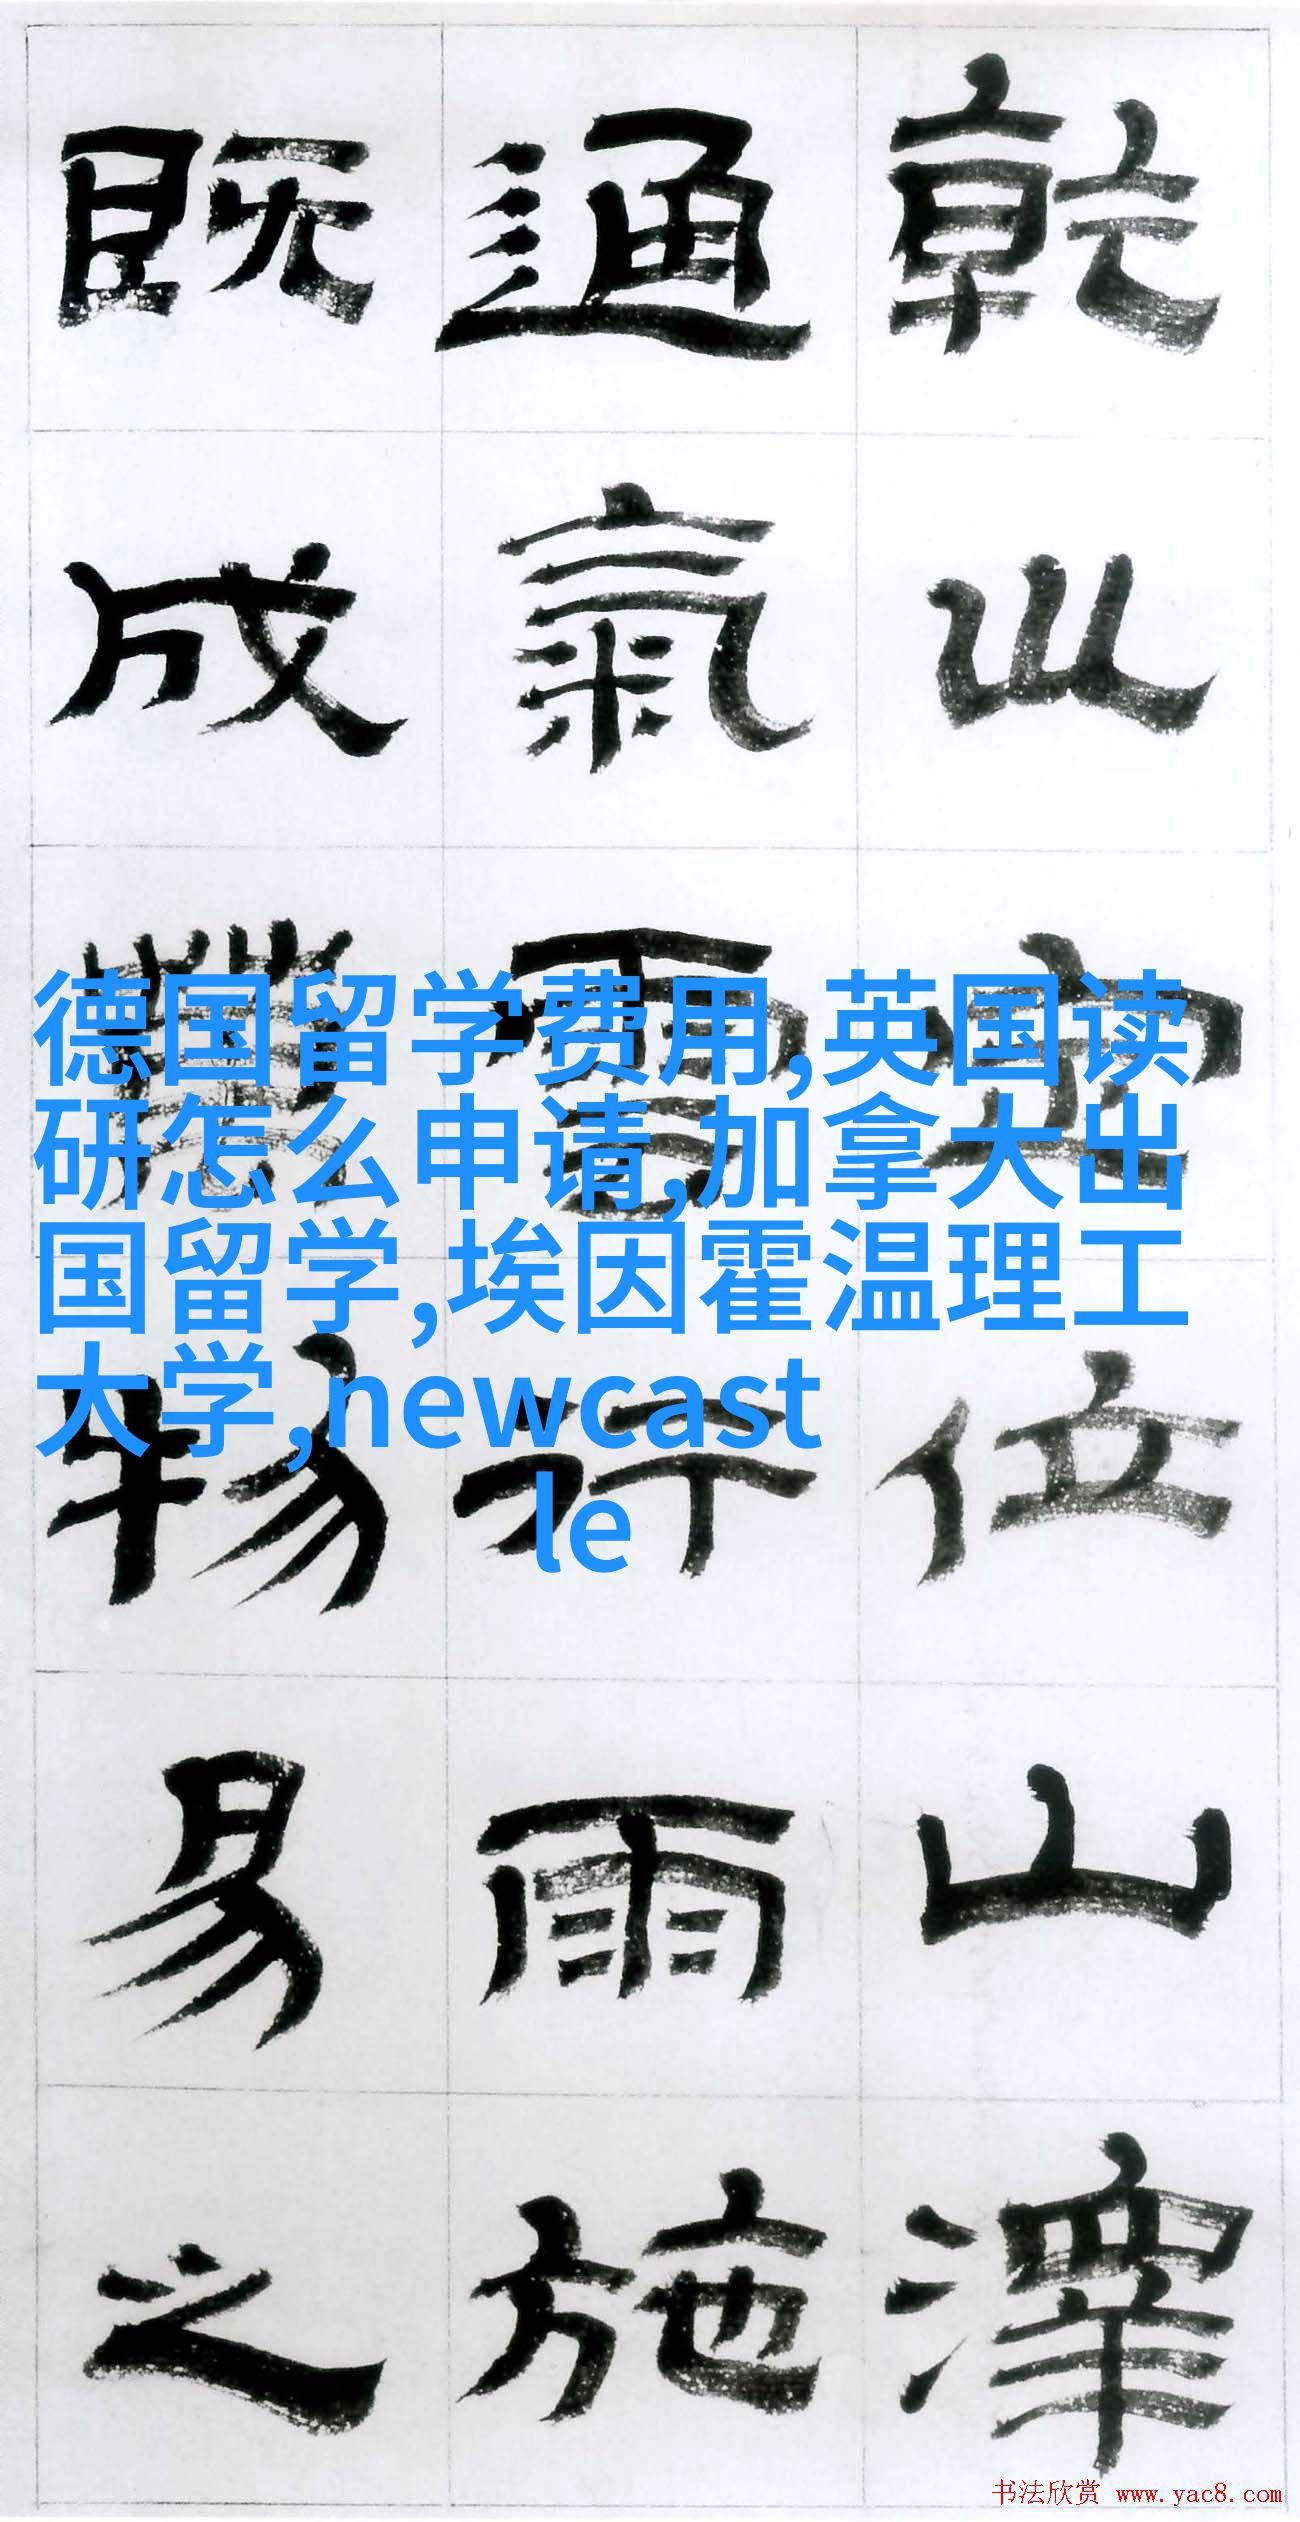 乾巛定位山澤
通氣雲行雨施
既成物易之
德国留学费用,英国读
研怎么申请,加拿大出
国留学,埃因霍温理工
大学,newcast
le
书法欣赏 www.yac8.com